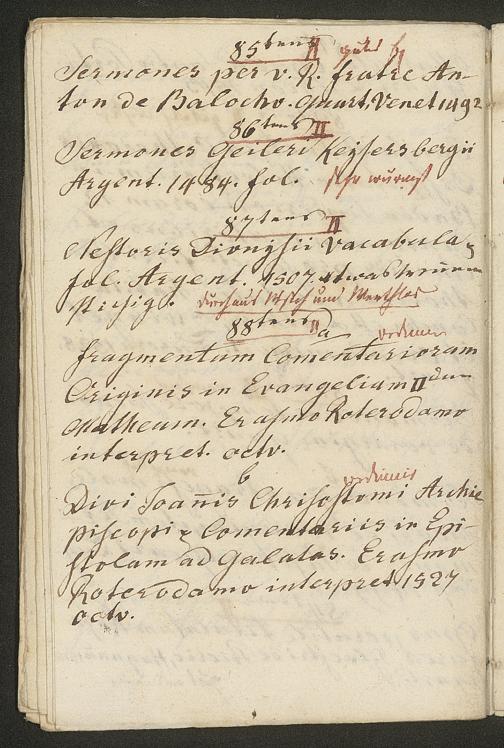 85tens II gutes Ex
Sermones per v. R. fratre An-
ton de Balochv. quart, Venet 1492
86tens II
Sermones Geileri Keysersbergii
Argent. 1484. fol. sehr wurmst
87tens II
Nestoris Dionysii Vocabula
fol. Argent. 1507. etwas
stichig. durchaus und Werthlos
88tens II
a defect
fragmentum Comentariorum
Originis in Evangelium IIdum
Matheum. Erasmo Roterodamo
interpret. octv.
b
Divi Joannis Chrisostomi Archie
piscopi Comentariis in Epi-
stolam ad Galatas. Erasmo
Roterodamo interpret 1527
octv.